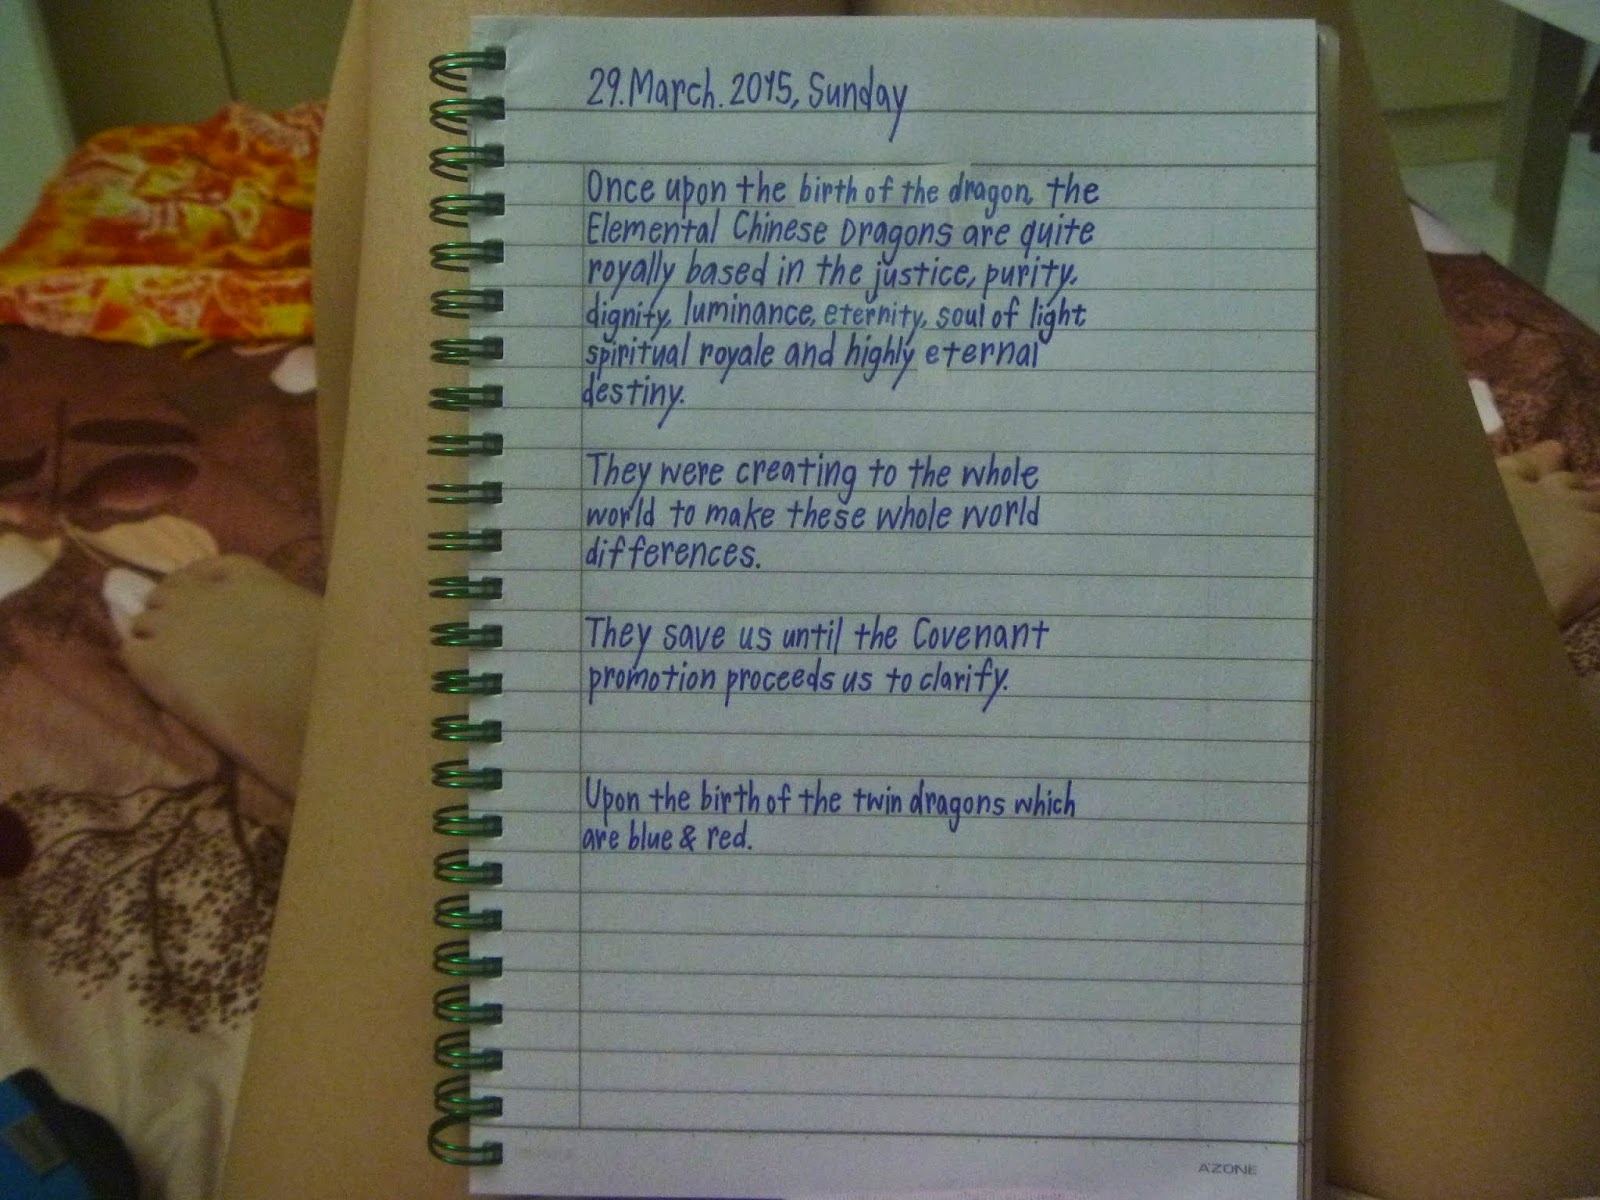 29.March.2015, Sunday
Once upon the birth of the dragon, the
Elemental Chinese Dragons are quite
royally based in the justice, purity,
dignity, luminance, eternity, soul of light
spiritual royale and highly eternal
destiny.
They were creating to the whole
world to make these whole world
differences.
They save us until the Covenant
promotion proceeds us to clarify.
Upon the birth of the twin dragons which
are blue & red.
AZONE